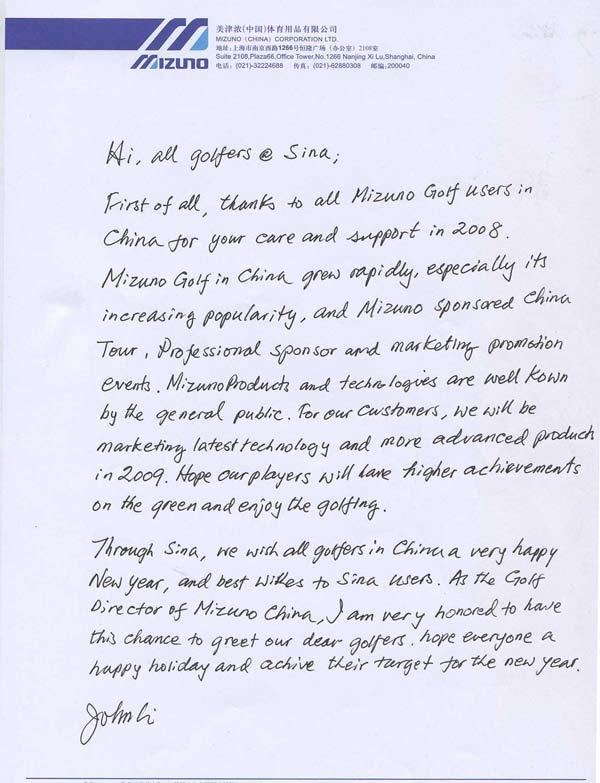 美津浓(中国)体育用品有限公司
MIZUNO (CHINA) CORPORATION LTD.
地址:上海市南京西路1266号恒隆广场(办公室)2108室
Suite 2108,Plaza66,Office Tower,No.1266 Nanjing Xi Lu,Shanghai, China
电话:(021)-32224688 传真:(021)-62880308 邮编:200040
MIZUNO
Hi, all golfers @ Sina;
First of all, thanks to all Mizuno Golf users in
China for your care and support in 2008.
Mizuno Golf in China grew rapidly, especially its
increasing popularity, and Mizuno sponsored China
Tour, Professional sponsor and marketing promotion
events. Mizuno Products and technologies are well Kown
by the general public. For our customers, we will be
marketing latest technology and more advanced products
in 2009. Hope our players will have higher achievements
on the green and enjoy the golfing.
Through Sina, we wish all golfers in China a very happy
New year, and best wishes to Sina users. As the Golf
Director of Mizuno China, I am very honored to have
this chance to greet our dear golfers. hope everyone a
happy holiday and achive their target for the new year.
John Li